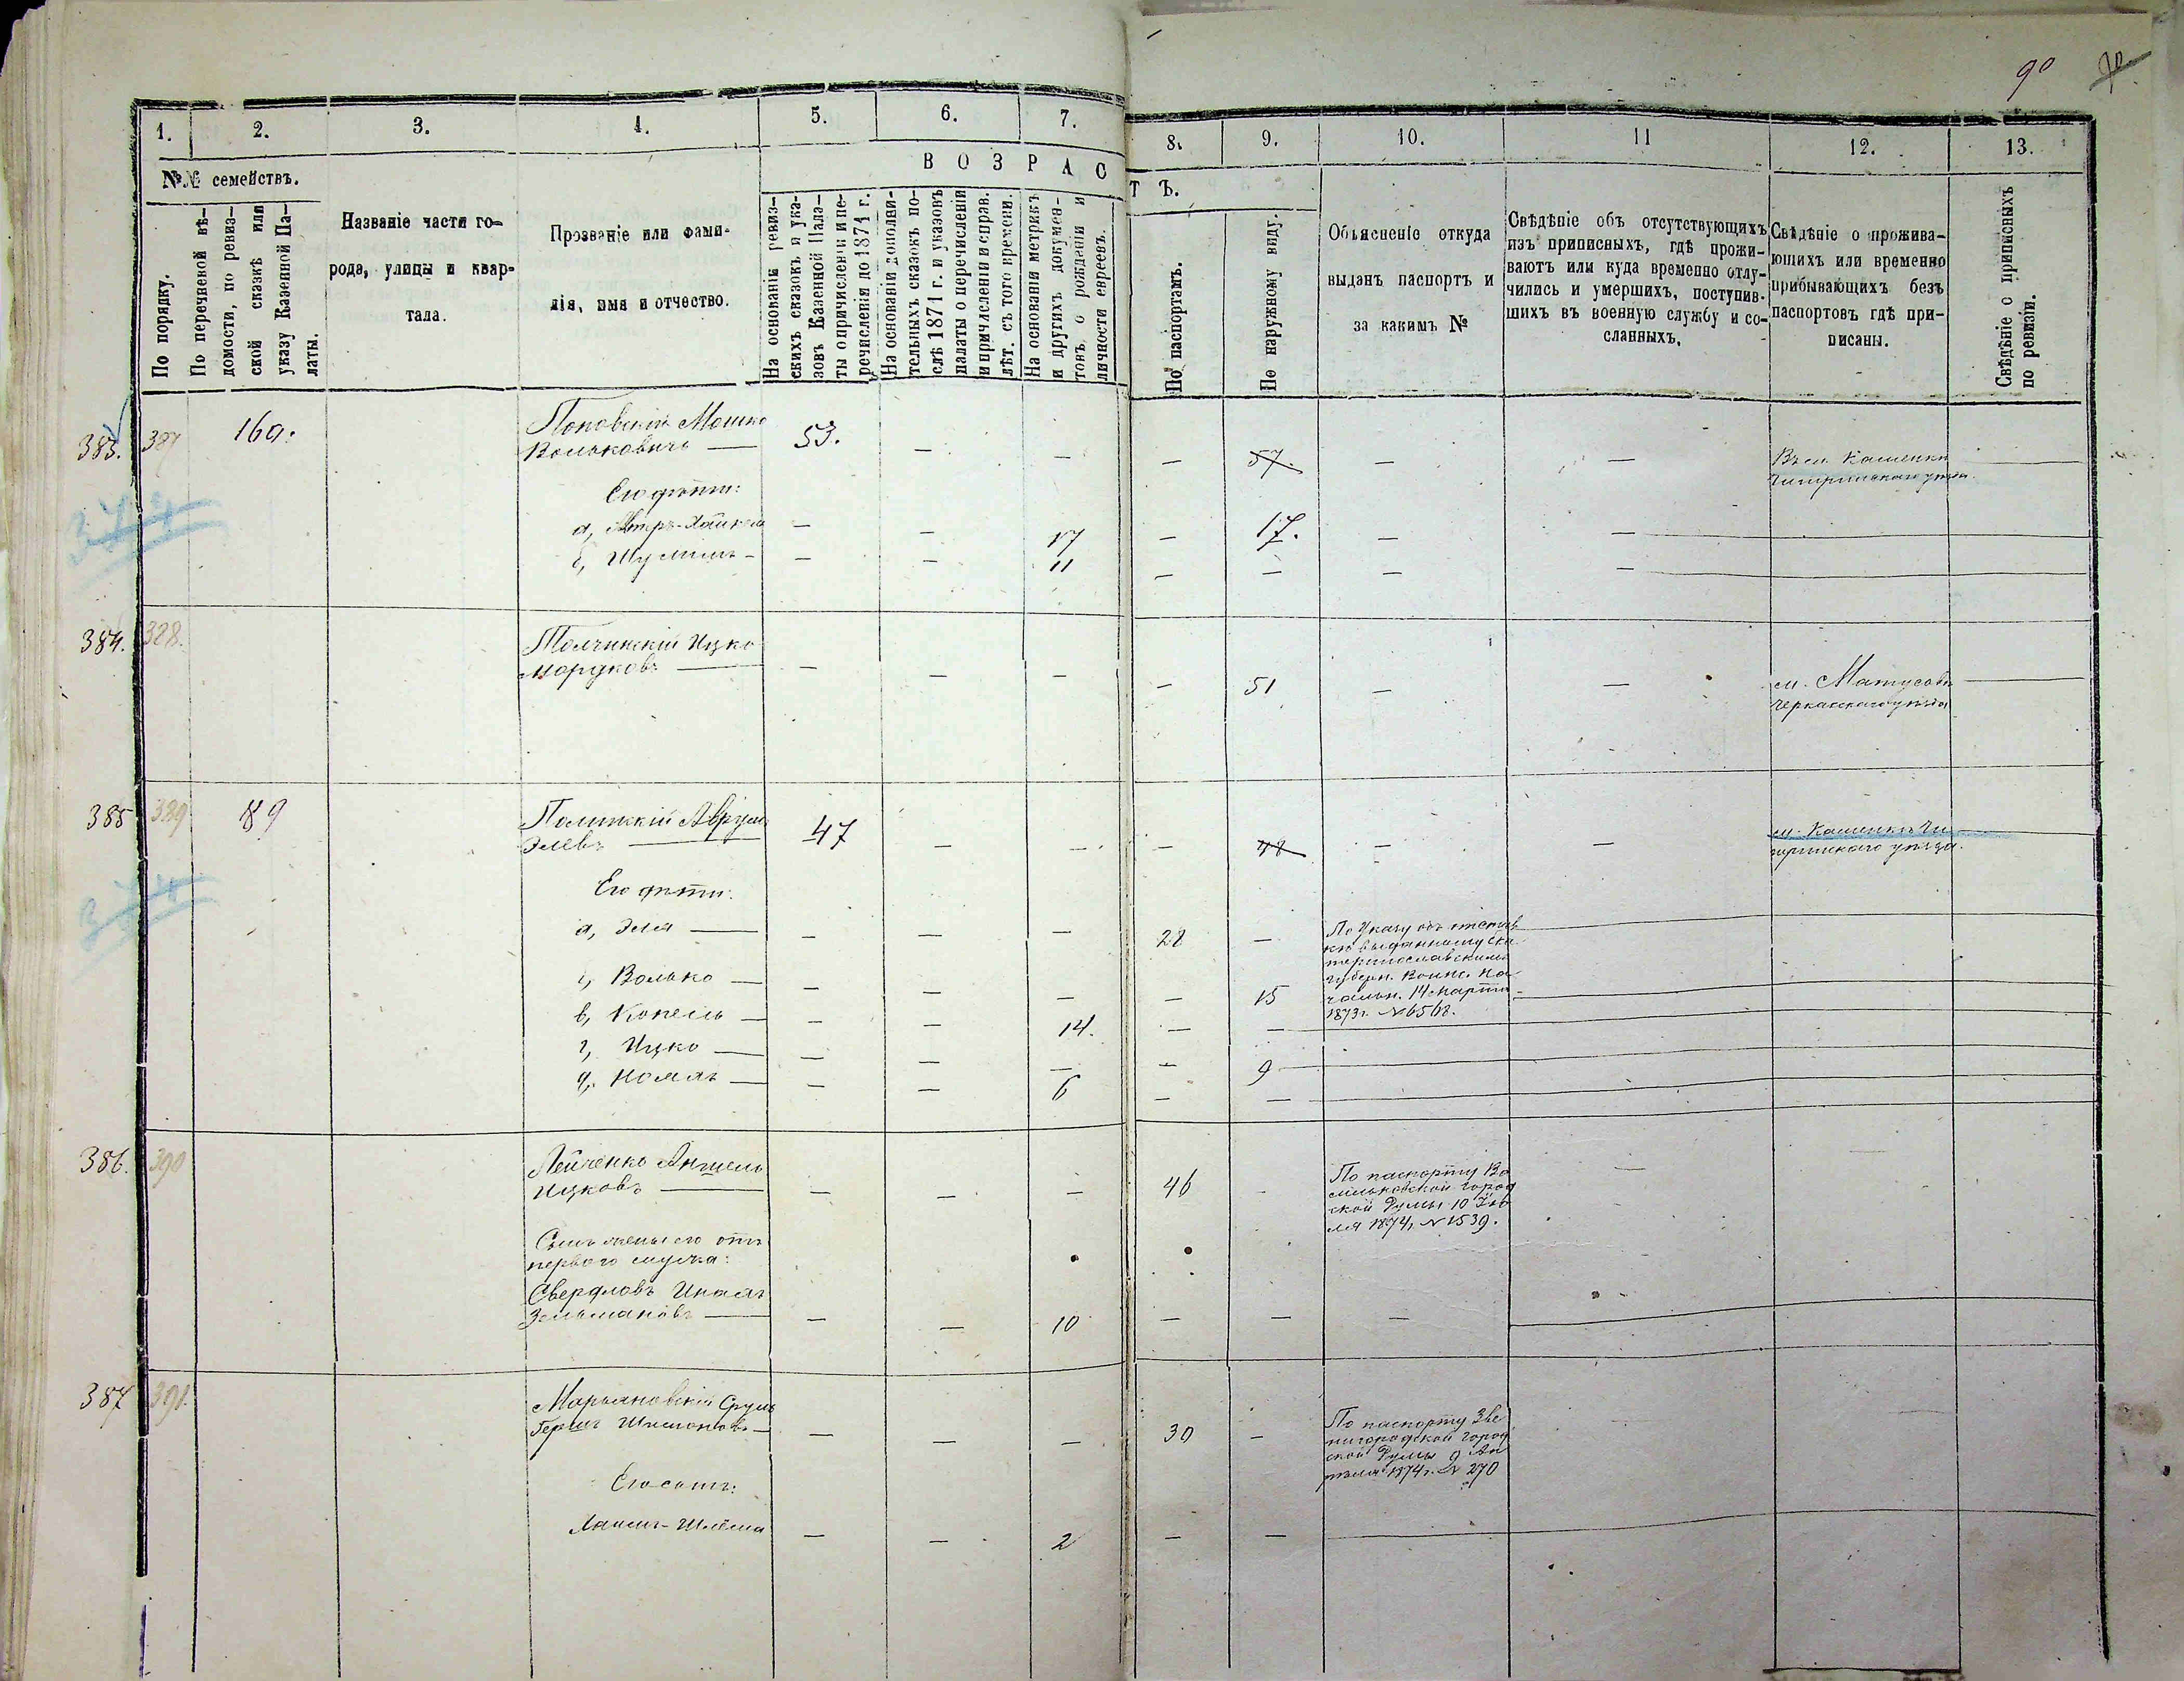 90
1. 2. 3. 4. 5. 6. 7. 8. 9. 10. 11 12. 13.
№№ семействъ.
В О З Р А С Т Ъ.
По порядку.
По перечневой вѣ-
домости, по ревиз-
ской сказкѣ или
указу Казенной Па-
латы.
Названіе части го-
рода, улицы и квар-
тала.
Прозваніе или фами-
лія, имя и отчество.
На основаніи ревиз-
скихъ сказокъ и ука-
зовъ Казенной Пала-
ты о причисленіи и пе-
речисленія до 1871 г.
На основаніи дополни-
тельныхъ сказокъ по-
слѣ 1871 г. и указовъ
палаты о перечисленіи
и причисленіи исправ.
лѣт. съ того времени.
На основаніи метрикъ
и другихъ докумен-
товъ о рожденіи и
личности евреевъ.
По паспортамъ.
По наружному виду.
Объясненіе откуда
выданъ паспортъ и
за какимъ №
Свѣдѣніе объ отсутствующихъ
изъ приписныхъ, гдѣ прожи-
ваютъ или куда временно отлу-
чились и умершихъ, поступив-
шихъ въ военную службу и со-
сланныхъ.
Свѣдѣніе о прожива-
ющихъ или временно
прибывающихъ безъ
паспортовъ гдѣ при-
писаны.
Свѣдѣніе о приписныхъ
по ревизіи.
383. 387 160. Поповскій Мошко
Вольковичъ — 53. — — — 57. — — Въ м. Каменки
Чигиринскаго уѣзда.
Его дѣти:
374
а, — — 17 — 17. — —
б, — — 11 — — — —
384. 388. Толчинскій Ицко
Мордковъ — — — — — 51 — — м. Матусовъ
Черкасскаго уѣзда
385 389 89 Полинскій Аврумъ
Элевъ — 47 — — — 48 — — м. Каменки Чи-
гиринскаго уѣзда.
374
Его дѣти:
а, Эля — — — — 28 — По Указу объ отстав
кѣ выданному Ека
теринославскимъ
губерн. воинс. на
чальн. 14 марта
1873г. № 6568.
б, Волько — — — — — 15
в, Копель — — — 14. — —
г, Ицко — — — — — 9
д, — — — 6 — —
386. 390 Лейченко Аншель
Ицковъ — — — — 46 - По паспорту Ва
сильковской город
ской Думы 10 Iю
ля 1874, № 1539. —
Сынъ жены его отъ
перваго мужа:
Свердловъ
Зельмановъ — — — 10 — — —
387 391. Марьяновскій Сруль
Гершъ Шимоновъ — — — — 30 — По паспорту Зве
нигородской город
ской Думы 9 Ап
рѣля 1874 г. № 270
Его сынъ:
— — 2 — —